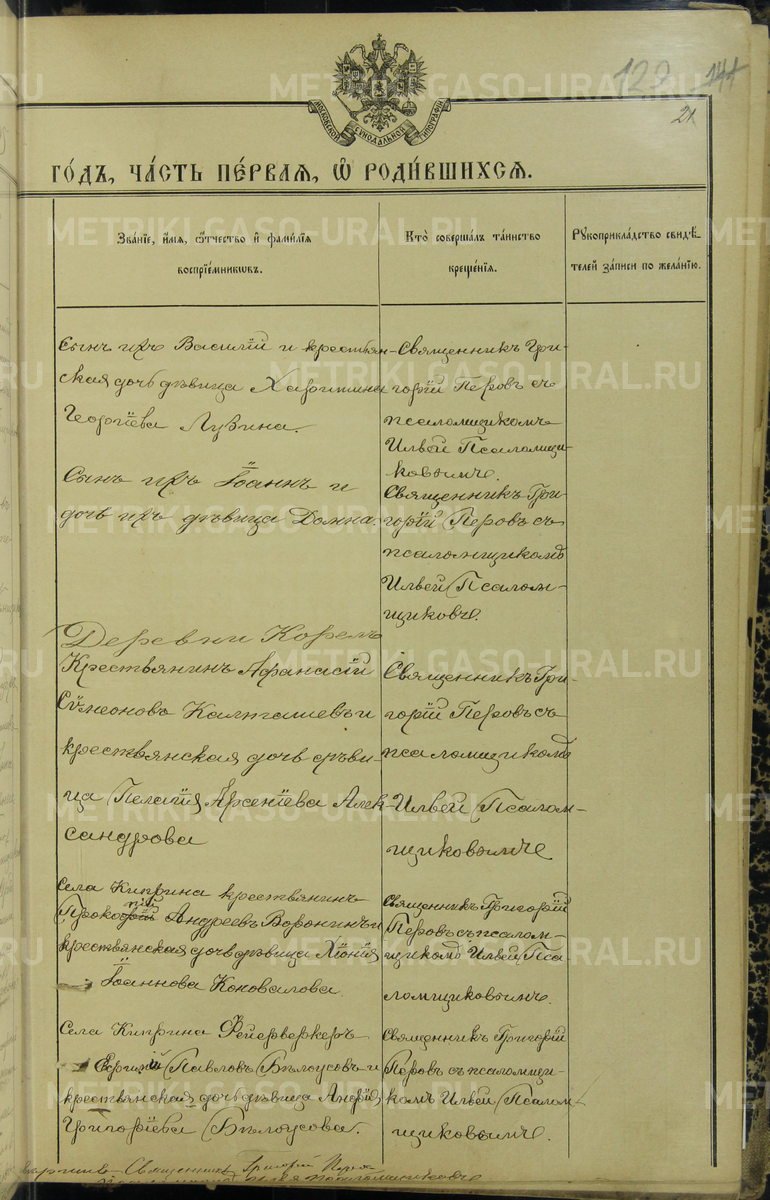 127 141
21
МОСКОВСКОЙ СѴНОДАЛЬНОЙ ТИПОГРАФІИ
ГО́ДЪ, ЧА́СТЬ ПЕ́РВАЯ, Ѽ РОДИ́ВШИХСѦ.
Зва́нїе, и́мя, ѻ҆́тчество и҆ фами́лїя
воспрїе́мникѡвъ.
Кто̀ соверша́лъ та́инство
креще́нїя.
Рꙋкоприкла́дство свидѣ́-
телей за́писи по жела́нїю.
Сынъ ихъ Василій и крестьян-
ская дочь дѣвица Харитина
Георгіева Лузина.
Священникъ Гри-
горій Перовъ съ
псаломщикомъ
Ильей Псаломщи-
ковымъ.
Сынъ ихъ Іоаннъ и
дочь ихъ дѣвица Домна.
Священникъ Гри-
горій Перовъ съ
псаломщикомъ
Ильей Псалом-
щиковъ.
Деревни Корелъ
Крестьянинъ Афанасій
Сѵмеоновъ Калташевъ и
крестьянская дочь дѣви-
ца Пелагія Арсеніева Алек-
сандрова
Священникъ Гри-
горій Перовъ съ
псаломщикомъ
Ильей Псалом-
щиковымъ
Села Киприна крестьянинъ
Прокопій Андреевъ Воронинъ и
крестьянская дочь дѣвица Хіонія
Іоаннова Коновалова.
Священникъ Григорій
Перовъ съ псалом-
щикомъ Ильей Пса-
ломщиковымъ.
Села Киприна Фейерверкеръ
Сергій Павловъ Бѣлоусовъ и
крестьянская дочь дѣвица
Григоріева Бѣлоусова.
Священникъ Григорій
Перовъ съ псаломщи-
комъ Ильей Псалом-
щиковымъ.
Священникъ Григорій Перовъ
Псаломщикъ Илья Псаломщиковъ
METRIKI.GASO-URAL.RU